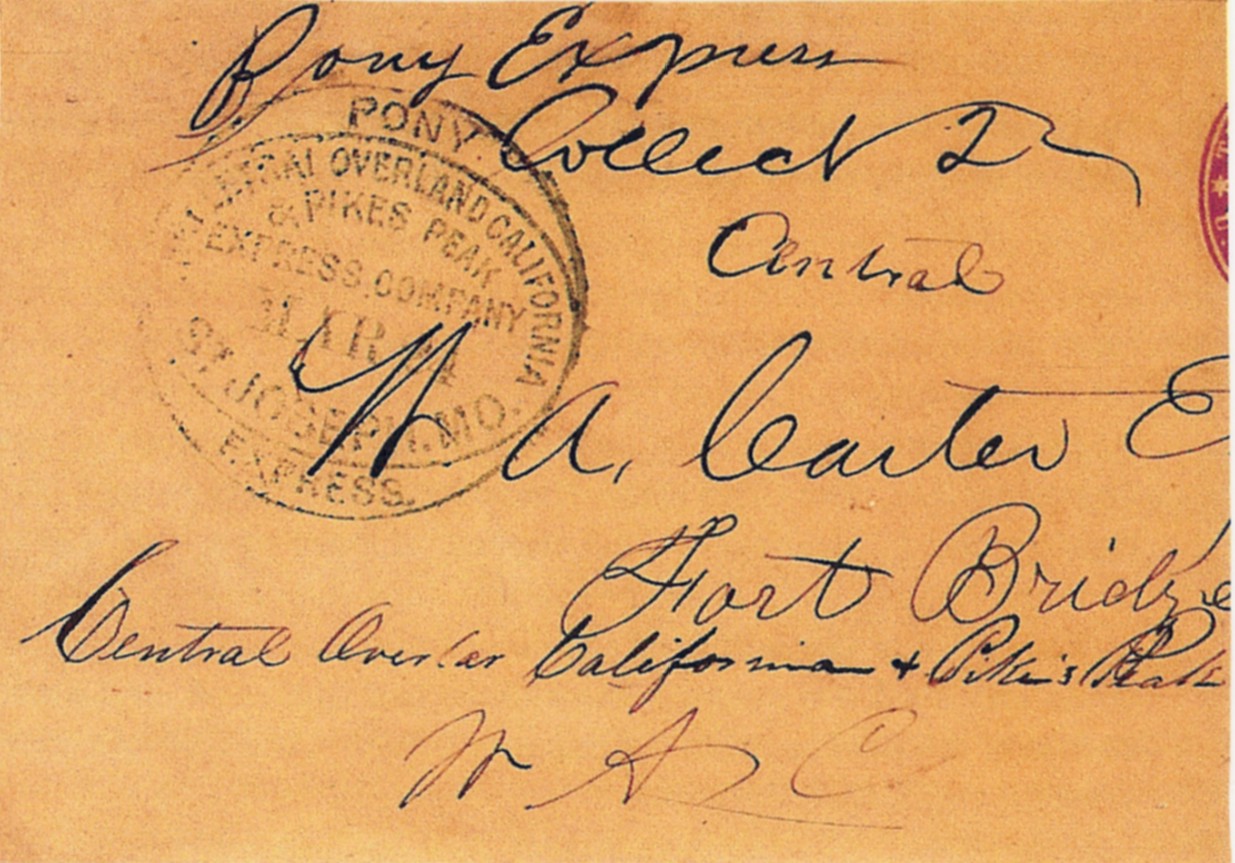 Pony Express
Collect 2
Central
PONY
CENTRAL OVERLAND CALIFORNIA
& PIKES PEAK
EXPRESS COMPANY
MAR
ST JOSEPH. MO.
EXPRESS
W A. Carter E
Fort Bridge
Central Overlan California + Pike's Peak
W A C